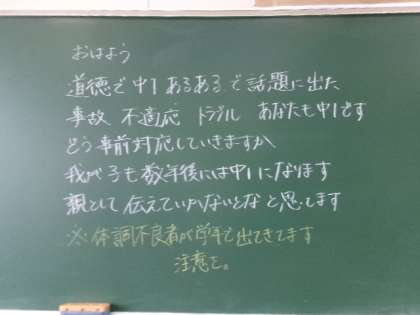 おはよう
道徳で中1あるあるで話題に出た
事故 不適応 トラブル あなたも中1です
どう事前対応していきますか
我が子も数年後には中1になります
親として伝えていかないとなと思います
※体調不良者が学年で出てきてます
注意を。